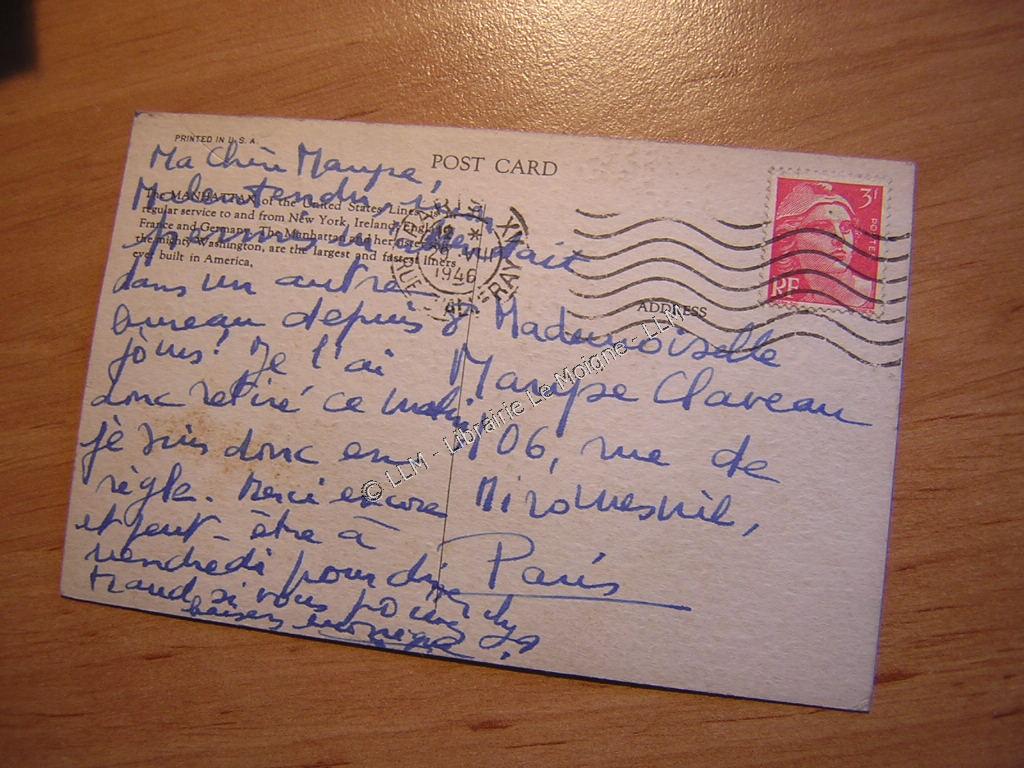 PRINTED IN U.S.A.
POST CARD
Ma Chère Maryse,
Malentendu,
The MANHATTAN of the United States Lines
regular service to and from New York, Ireland, England,
France and Germany. The Manhattan and her sister
the mighty Washington, are the largest and fastest liners
ever built in America.
dans un autre
bureau depuis 8
jours! Je l'ai
donc retiré ce matin
je suis donc en
règle. Merci encore
et peut-être à
vendredi pour
si vous
baisers
1946
3F
POSTES
RF
ADDRESS
Mademoiselle
Maryse Claveau
106, rue de
Miromesnil,
Paris
© LLM - Librairie Le Moigne - LLM